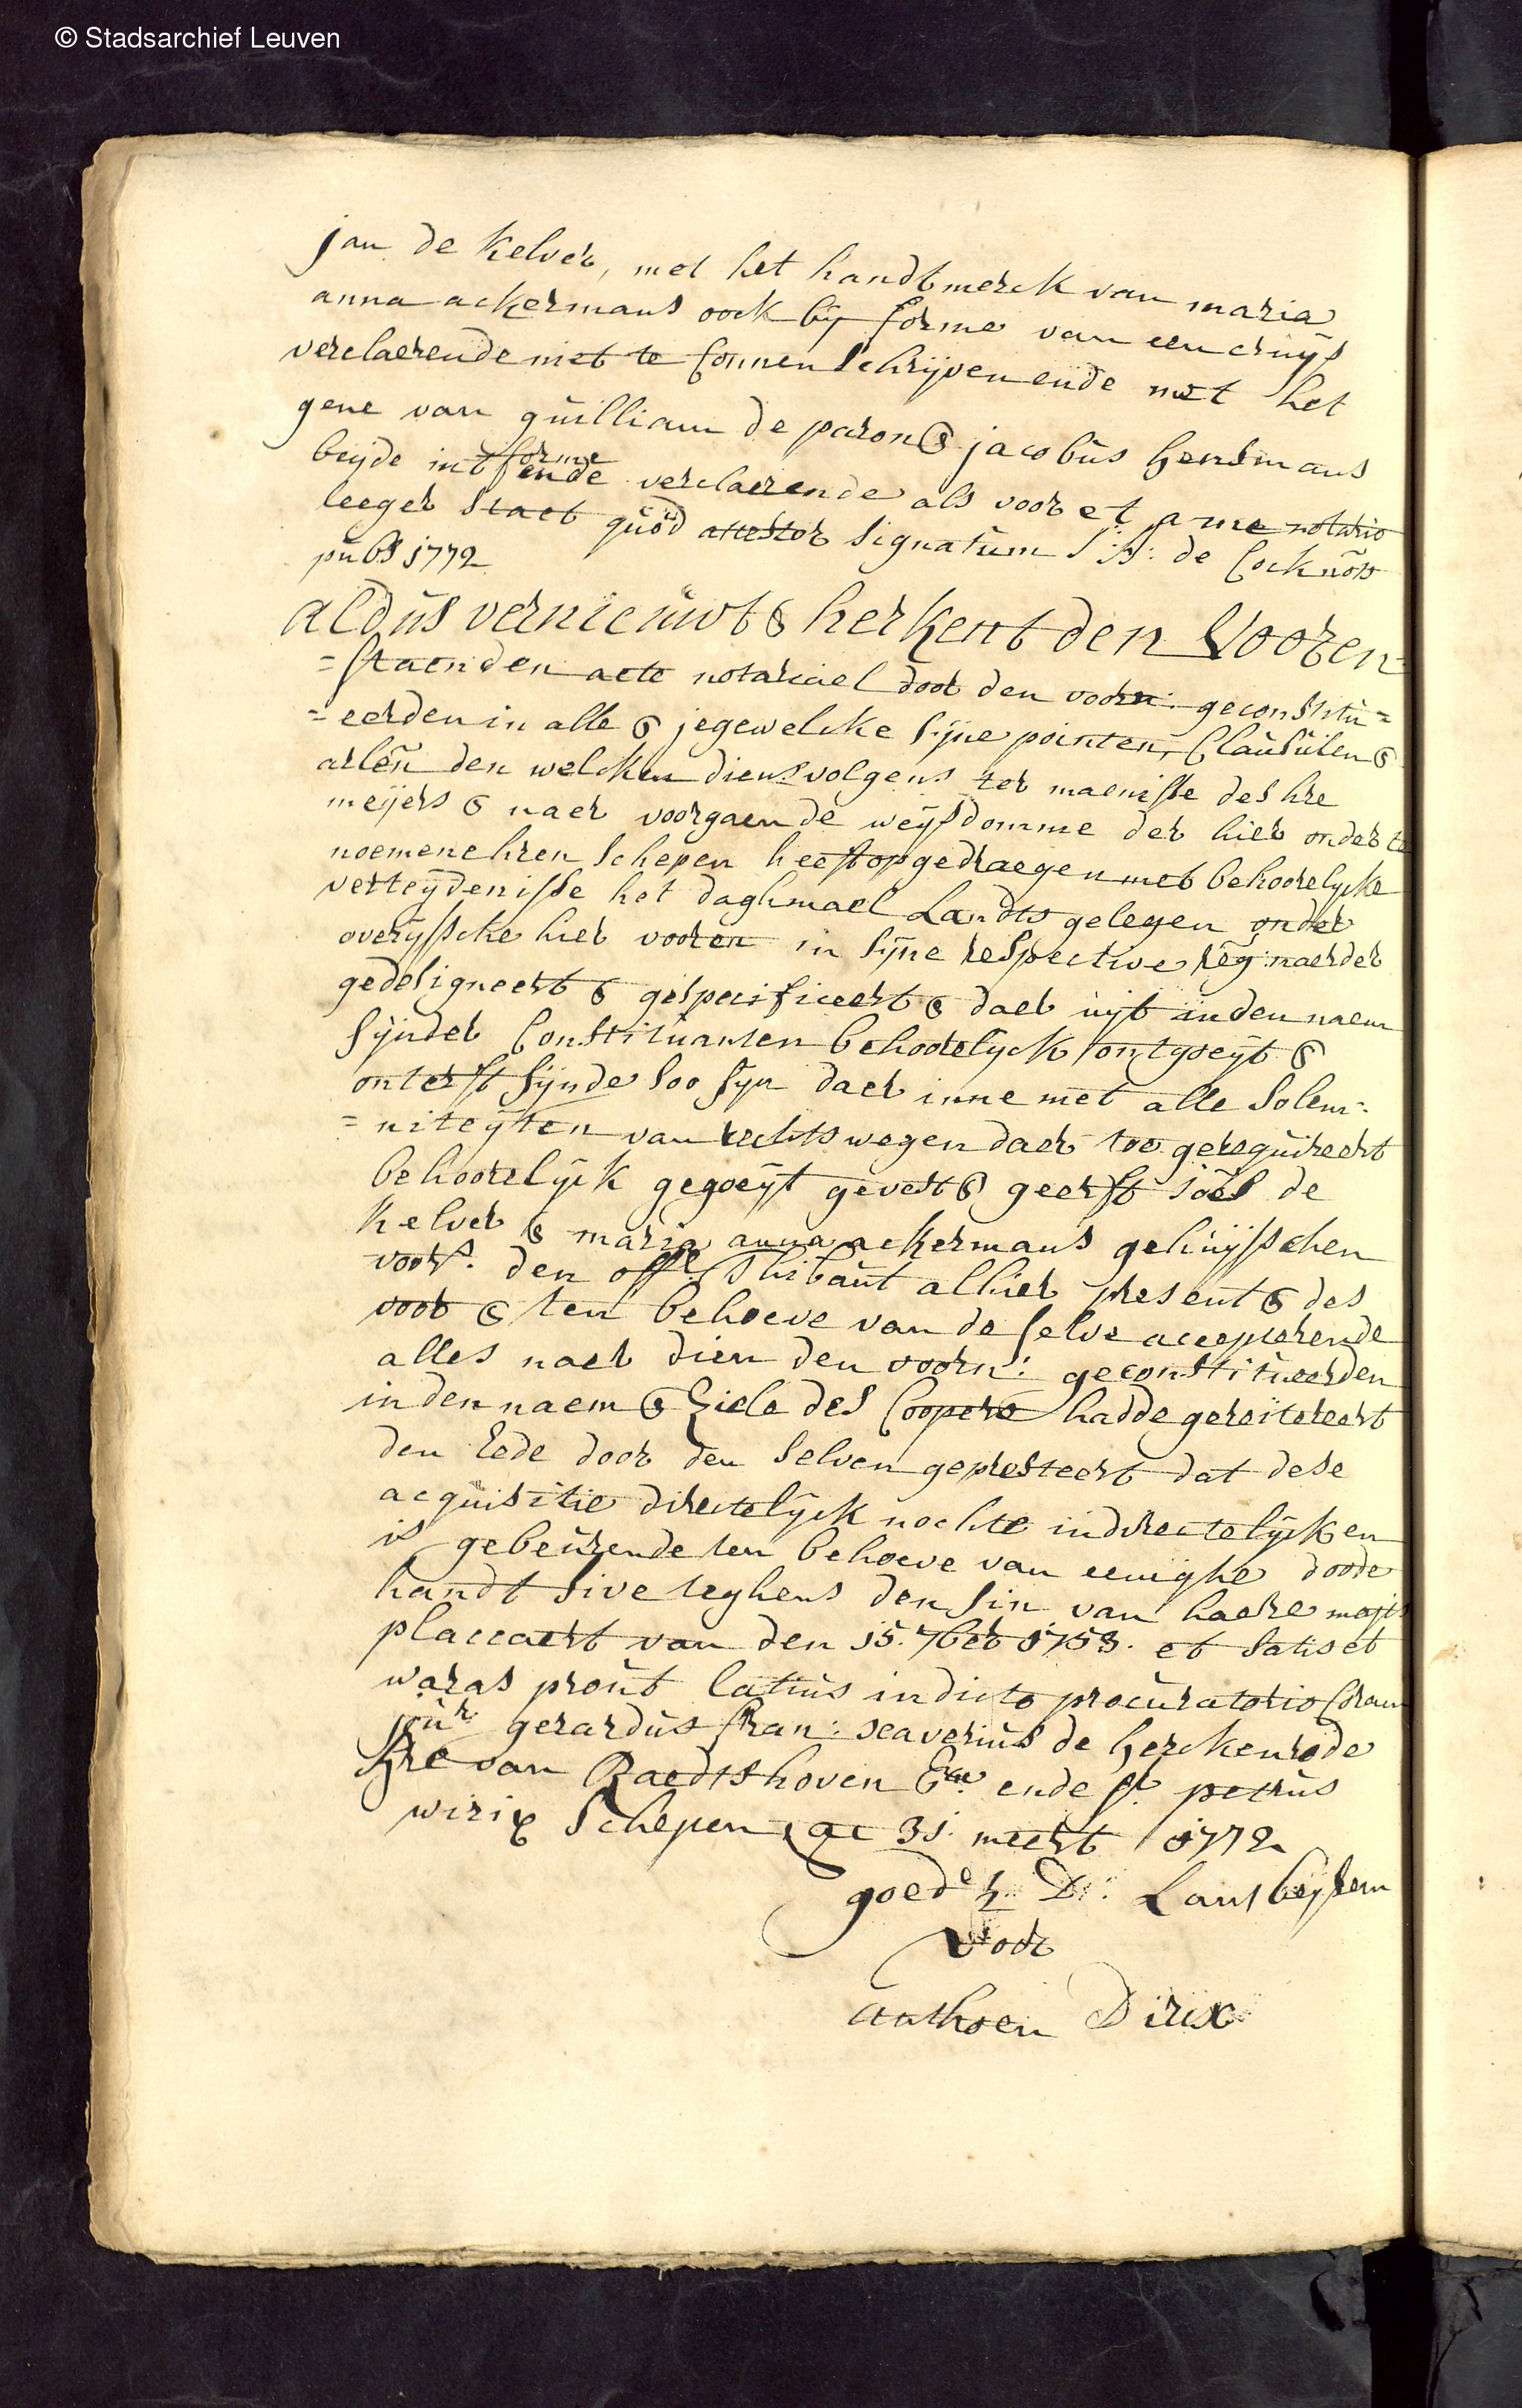 © Stadsarchief Leuven
jan de Kelver, met het handtmerck van maria
anna ackermans oock bij forme van een cruijs
verclaerende niet te connen schrijven ende met het
gene van guilliam de paron & jacobus hensmans
beijde int forme ende verclaerende als voor et a me notario
leeger staet quod attestor signatum J: B: de Cock nots
pubs 1772
aldus vernieuwt & herkent den Vooren=
=staenden acte notariael door den voorn: geconstitu=
=eerden in alle & jegewelcke sijne pointen, Clausulen &
arlen den welcken dienvolgens ter maenisse des hre
meijers & naer voorgaende weijsdomme der hier onder te
noemene hren schepen heeft opgedraegen met behoorelycke
verteijdenisse het daghmael Landts gelegen onder
overijssche hier vooren in sijne respective reg: naerder
gedesigneert & gespecificeert & daer uijt inden naem
sijnder Constituanten behoorelijck ontgoeijt &
onterft sijnde soo sijn daer inne met alle solem=
=niteijten van rechts wegen daer toe gerequireert
behoorelijck gegoeijt gevest & geerft joës de
Kelver & maria anna ackermans gehuijsschen
voors. den offl. Thibaut alhier present & des
voor & ten behoeve van de selve accepterende
alles naer dien den voorn: geconstitueerden
inden naem & Ziele des Coopers hadde gereitereert
den Eede door den selven gepresteert dat dese
acquisitie directelijck nochte indirectelijck en
is gebeurende ten behoeve van eenighe doode
handt sive teghens den sin van haere majts
placcaert van den 15. 7ber 1753. et satis et
waras prout latius in dicto procuratorio Coram
jour gerardus fran: xaverius de herckenrode
hre van Raedtshoven &ca ende sr petrus
wirix schepen hac 31 meert 1772
goede h D: Lantbeijtem
Voor
anthoen Dirix